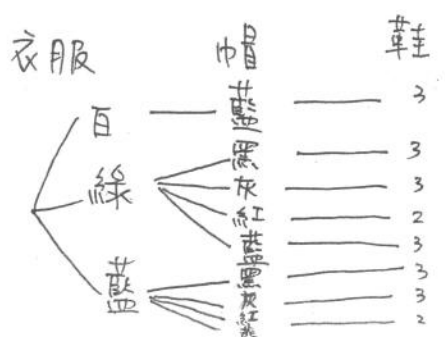 衣服 帽 鞋
百 藍 3
黑 3
綠 灰 3
紅 2
藍 3
藍 黑 3
灰 3
紅 2